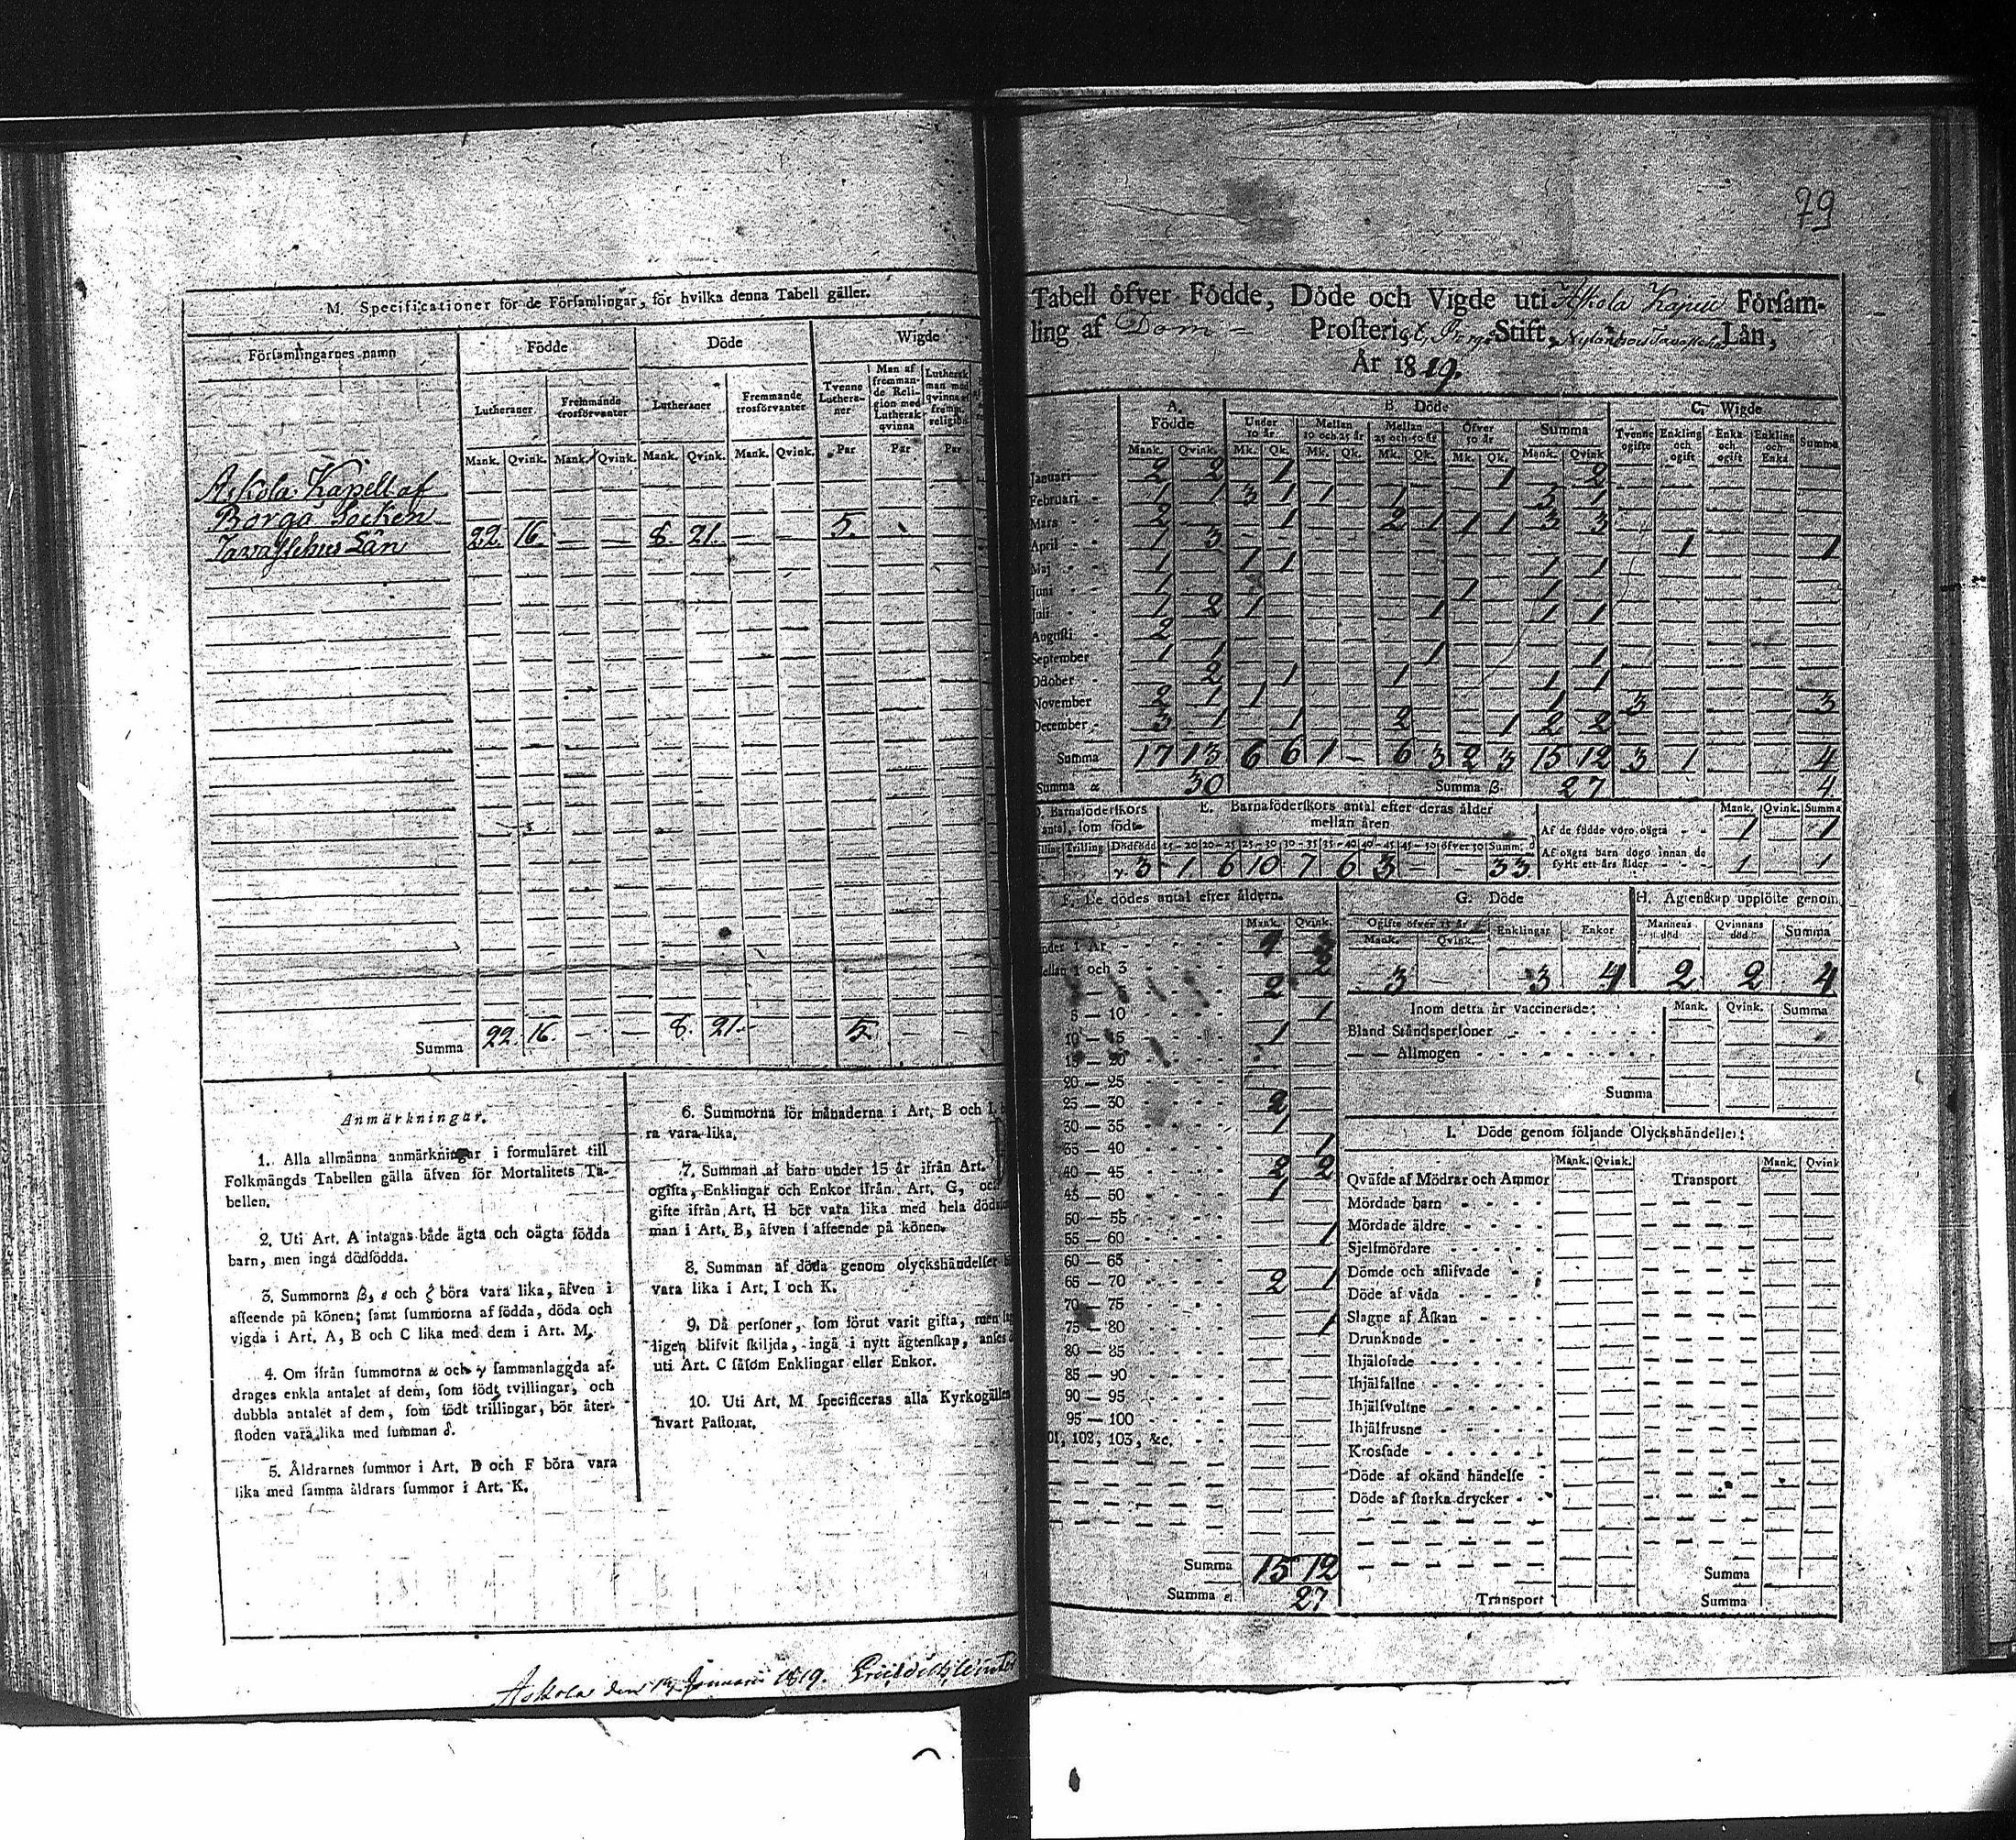 M. Specificationer för de Församlingar, för hvilka denna Tabell gäller.
Församlingarnes namn
Födde
Döde
Wigde
Lutheraner
Fremmande trosförvanter
Lutheraner
Fremmande trosförvanter
Tvenne Lutheraner
Man af fremmande Religion med Luthersk qvinna
Luthersk man med qvinna af fremm. religion
Mank. Qvink. Mank. Qvink. Mank. Qvink. Mank. Qvink. Par Par Par
Askola Kapell af
Borgå Socken
Tavastehus Län 22. 16. — — 8. 21. — — 5.
Summa 22. 16. — — 8. 21. 5. — —
Anmärkningar.
1. Alla allmänna anmärkningar i formuläret till
Folkmängds Tabellen gälla äfven för Mortalitets Ta-
bellen.
2. Uti Art. A intagas både ägta och oägta födda
barn, men ingå dödfödda.
3. Summorna β, ε och ζ böra vara lika, äfven i
afseende på könen; samt summorna af födda, döda och
vigda i Art. A, B och C lika med dem i Art. M.
4. Om ifrån summorna α och γ sammanlaggda af-
drages enkla antalet af dem, som födt tvillingar, och
dubbla antalet af dem, som födt trillingar, bör åter-
stoden vara lika med summan δ.
5. Åldrarnes summor i Art. B och F böra vara
lika med samma åldrars summor i Art. K.
6. Summorna för månaderna i Art. B och L
ra vara lika.
7. Summan af barn under 15 år ifrån Art.
ogifta, Enklingar och Enkor ifrån Art. G, och
gifte ifrån Art. H bör vara lika med hela
man i Art. B, äfven i afseende på könen.
8. Summan af döda genom olyckshändelser
vara lika i Art. I och K.
9. Då personer, som förut varit gifta, men
ligen blifvit skiljda, ingå i nytt ägtenskap, anses
uti Art. C såsom Enklingar eller Enkor.
10. Uti Art. M specificeras alla Kyrkogällen
hvart Pastorat.
Askola den Januari 1819.
79
Tabell öfver Födde, Döde och Vigde uti Askola Församling
ling af Dom- Prosteri Stift, Län,
År 1819.
A. Födde
B. Döde
C. Wigde
Under 10 år.
Mellan 10 och 25 år
Mellan 25 och 50 år
Öfver 50 år
Summa
Tvenne ogifte
Enkling och ogift
Enka och ogift
Enkling och Enka
Summa
Mank. Qvink. Mk. Qk. Mk. Qk. Mk. Qk. Mk. Qk. Mank. Qvink
Januari 2 2 1 1 2
Februari 1 1 3 1 1 1 5 1
Mars 2 1 2 1 1 1 3 3
April 1 3 1 1
Maj 1 1 1 1
Juni 1 1 1
Juli 1 2 1 1 1 1
Augusti 2
September 1 1 1 1
October 2 1 1 1 1
November 2 1 1 1 3 3
December 3 1 1 2 1 2 2
Summa 17 13 6 6 1 - 6 3 2 3 15 12 3 1 4
Summa α 30 Summa β. 27 4
D. Barnaföderskors antal, som födt
E. Barnaföderskors antal efter deras ålder mellan åren
Trilling Dödfödd 15-20 20-25 25-30 30-35 35-40 40-45 45-50 öfver 50 Summ. δ
γ 3 1 6 10 7 6 3 — — 33
Mank. Qvink. Summa
Af de födde voro oägta 1 1
Af oägta barn dogo innan de
fyllt ett års ålder 1 1
F. De dödes antal efter åldern.
Mank. Qvink.
Under 1 År
Mellan 1 och 3
5 — 10 1
10 — 15 1
15 — 20
20 — 25
25 — 30 2
30 — 35 1
35 — 40 1
40 — 45 2 2
45 — 50 1
50 — 55
55 — 60 1
60 — 65
65 — 70 2 1
70 — 75
75 — 80 1
80 — 85
85 — 90
90 — 95
95 — 100
101, 102, 103, &c.
Summa 15 12
Summa ε 27
G. Döde
Ogifte öfver 15 år
Enklingar
Enkor
Mank. Qvink.
3 — 3 4
H. Ägtenskap upplöste genom
Mannens död
Qvinnans död
Summa
2 2 4
Inom detta år vaccinerade:
Mank. Qvink. Summa
Bland Ståndspersoner
— — Allmogen
Summa
I. Döde genom följande Olyckshändelser:
Mank. Qvink. Mank. Qvink
Qväfde af Mödrar och Ammor Transport
Mördade barn
Mördade äldre
Sjelfmördare
Dömde och aflifvade
Döde af våda
Slagne af Åskan
Drunknade
Ihjälosade
Ihjälfallne
Ihjälsvultne
Ihjälfrusne
Krossade
Döde af okänd händelse
Döde af starka drycker
Summa
Transport Summa